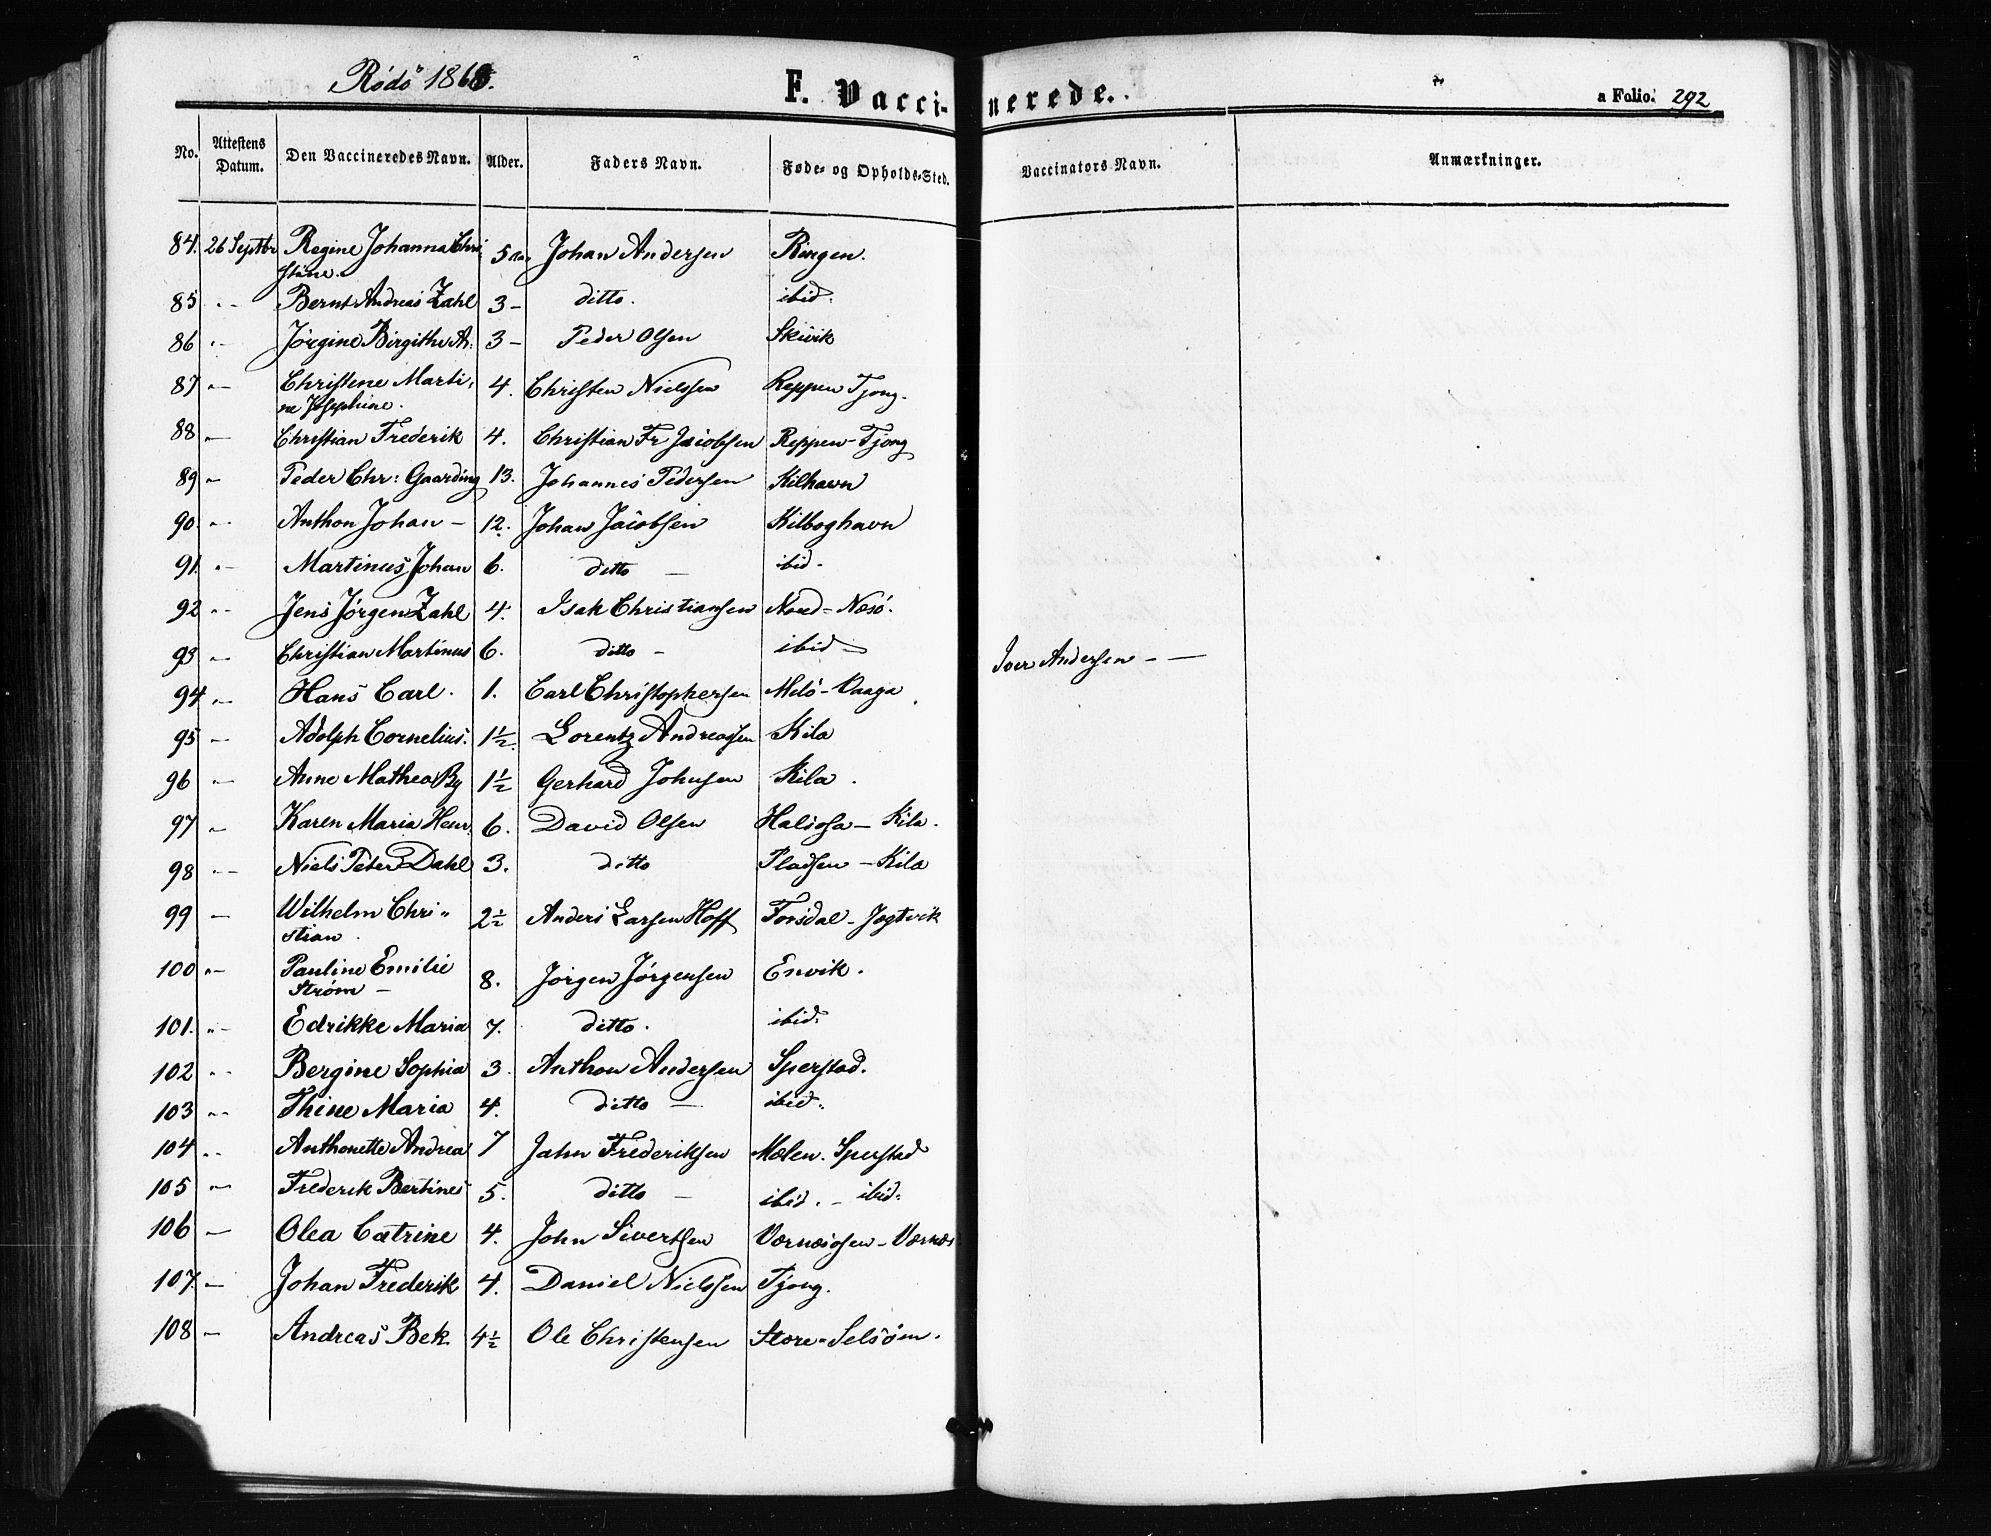 Rödö 186
F. Vaccinerede.
a Folio. 292
No. Attestens Datum. Den Vaccineredes Navn. Alder. Faders Navn. Føde- og Opholds-Sted. Vaccinators Navn. Anmærkninger.
84. 26 Septbr Regine Johanna Chri- 5 Johan Andersen Ringen.
stine.
85 " - Bernt Andreas Zahl 3 - ditto. ibid.
86 " - Jørgine Birgithe A: 3 - Peder Olsen Skivik
87 " - Christene Marti- 4. Christen Nielssen Reppen Tjong.
ne Josephine.
88 " - Christian Frederik 4. Christian Fr Jacobsen Reppen - Tjong
89 " - Peder Chr: Gaarding 13. Johannes Pedersen Kilhavn
90. " - Anthon Johan - 12. Johan Jacobsen Kilboghavn
91. " - Martinus Johan 6. ditto - ibid.
92 " - Jens Jørgen Zahl 4. Isak Christiansen Nord-Næsö.
93 " - Christian Martinus 6. ditto - ibid - Iver Andersen - -
94 " - Hans Carl. 1. Carl Christophersen Melö - Vaaga
95 " - Adolph Cornelius. 1½. Lorentz Andreassen Kila
96 " - Anne Mathea By 1½ Gerhard Johnsen Kila.
97 " - Karen Maria Henr. 6. David Olsen Halsosa - Kila.
98 " - Niels Peter Dahl 3. ditto Pladsen - Kila
99 " - Wilhelm Chri- 2½ Anders Larsen Hoff Forsdal - Jegtvik
stian.
100 " - Pauline Emilie 8. Jørgen Jørgensen Envik.
Strøm -
101. " - Edrikke Maria 7. ditto. ibid.
102 " - Bergine Sophia 3. Anthon Andersen Sperstad.
103 " - Thine Maria 4. ditto - ibid.
104 " - Anthonette Andrea 7 Jahn Frederiksen Melen. Sperstad
105 " - Frederik Bertines 5. ditto - ibid. - ibid.
106 - Olea Catrine 4. John Sivertsen Værnæsosen - Værnæs.
107. - Johan Frederik 4. Daniel Nielssen Tjong.
108 - Andreas Bek. 4½ Ole Christensen Store-Selsöen.